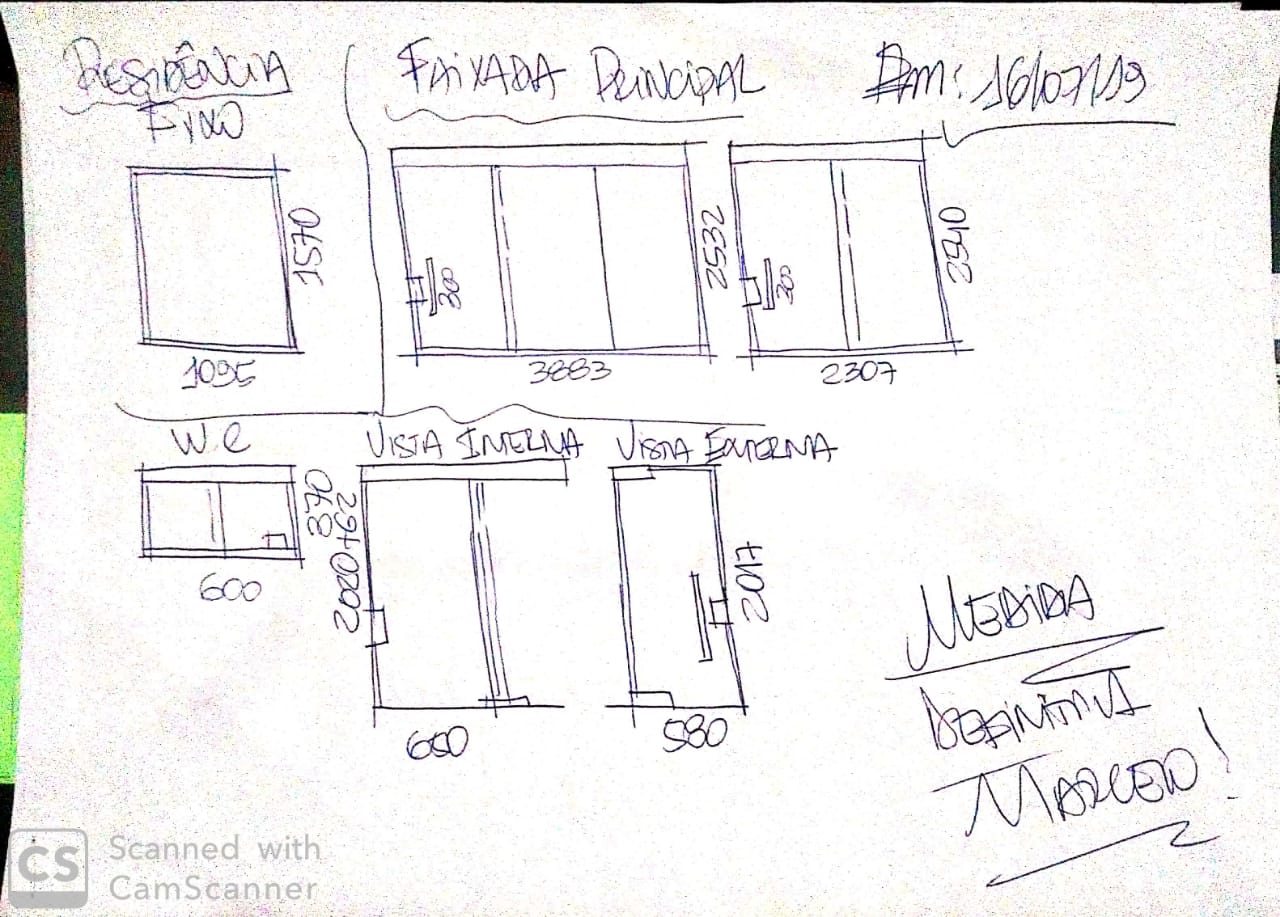 RESIDÊNCIA
FIXO
1570
1095
FAIXADA PRINCIPAL
Em: 16/07/19
300
2532
3883
300
2540
2307
W.C
370
600
VISTA INTERNA
2020+62
650
VISTA EXTERNA
2017
580
MEDIDA
DEFINITIVA
MARCELO!
CS
Scanned with
CamScanner